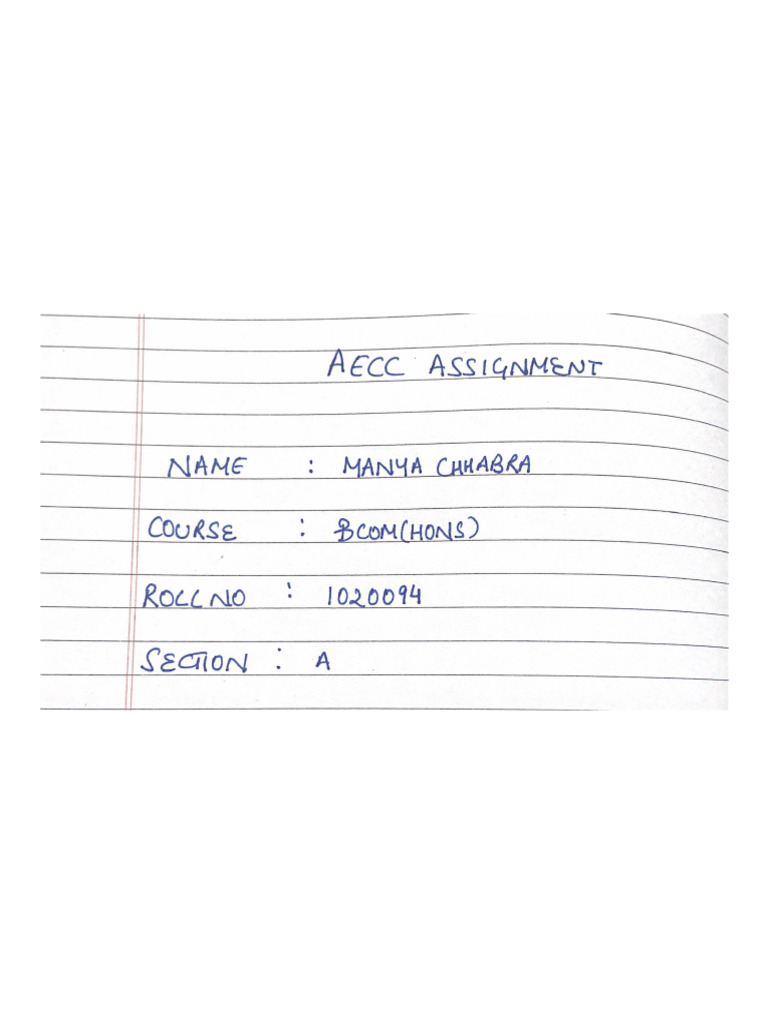 AECC ASSIGNMENT
NAME : MANYA CHHABRA
COURSE : BCOM(HONS)
ROLL NO : 1020094
SECTION : A